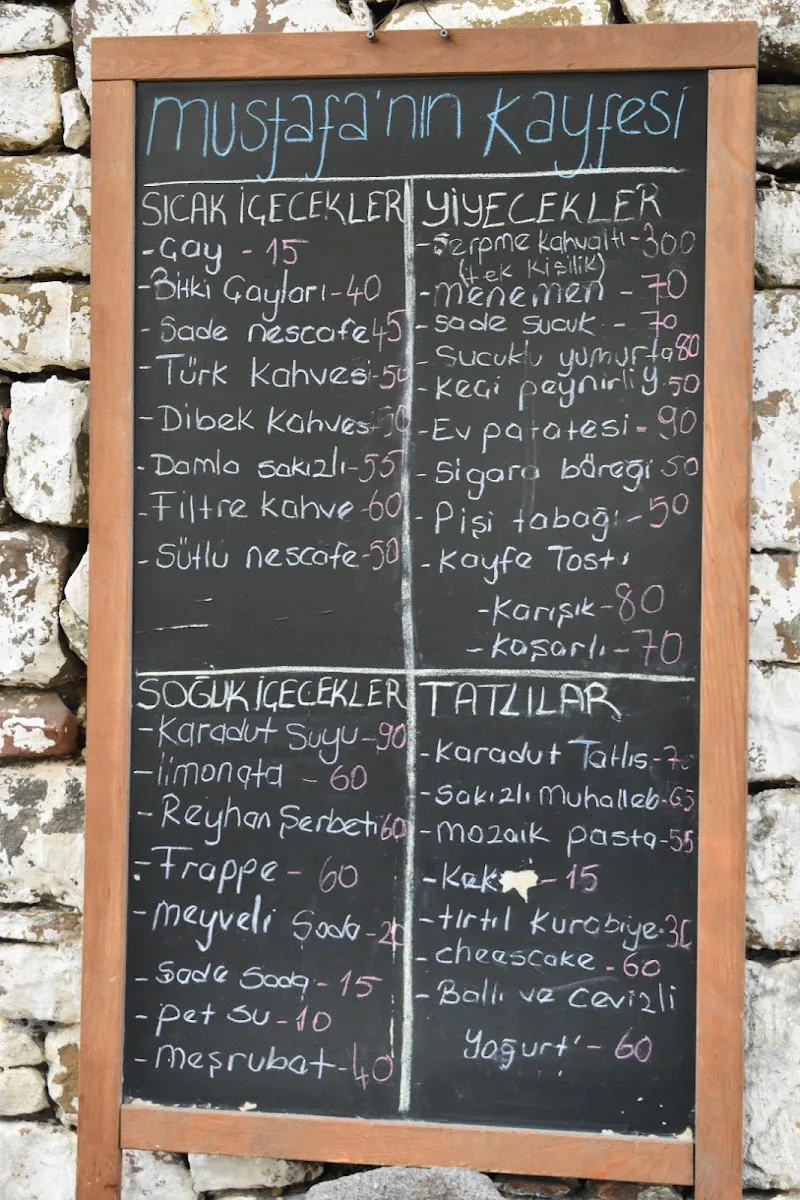 mustafa'nın Kayfesi
SICAK İÇECEKLER
-Çay - 15
-Bitki Çayları-40
-Sade nescafe 45
-Türk Kahvesi-50
-Dibek Kahves
-Damla sakızlı-55
-Filtre Kahve-60
-Sütlü nescafe-50
YİYECEKLER
-Serpme Kahvaltı-300
(tek Kişilik)
-menemen - 70
-sade sucuk - 70
-Sucuklu yumurta 80
-Keçi peynirli Y 50
-Ev patatesi-90
-Sigara böreği 50
-Pişi tabağı-50
-Kayfe Tostı
-Karışık-80
-Kaşarlı-70
SOĞUK İÇECEKLER
-Karadut Suyu-90
-limonata - 60
-Reyhan Şerbeti 60
-Frappe - 60
-meyveli Soda-20
-Sade Soda-15
-pet su-10
-meşrubat-40
TATLILAR
-Karadut Tatlıs-
-Sakızlı Muhalleb-65
-mozaik pasta-55
-Kek - 15
-tırtıl Kurabiye-30
-cheescake-60
-Ballı ve Cevizli
Yoğurt - 60